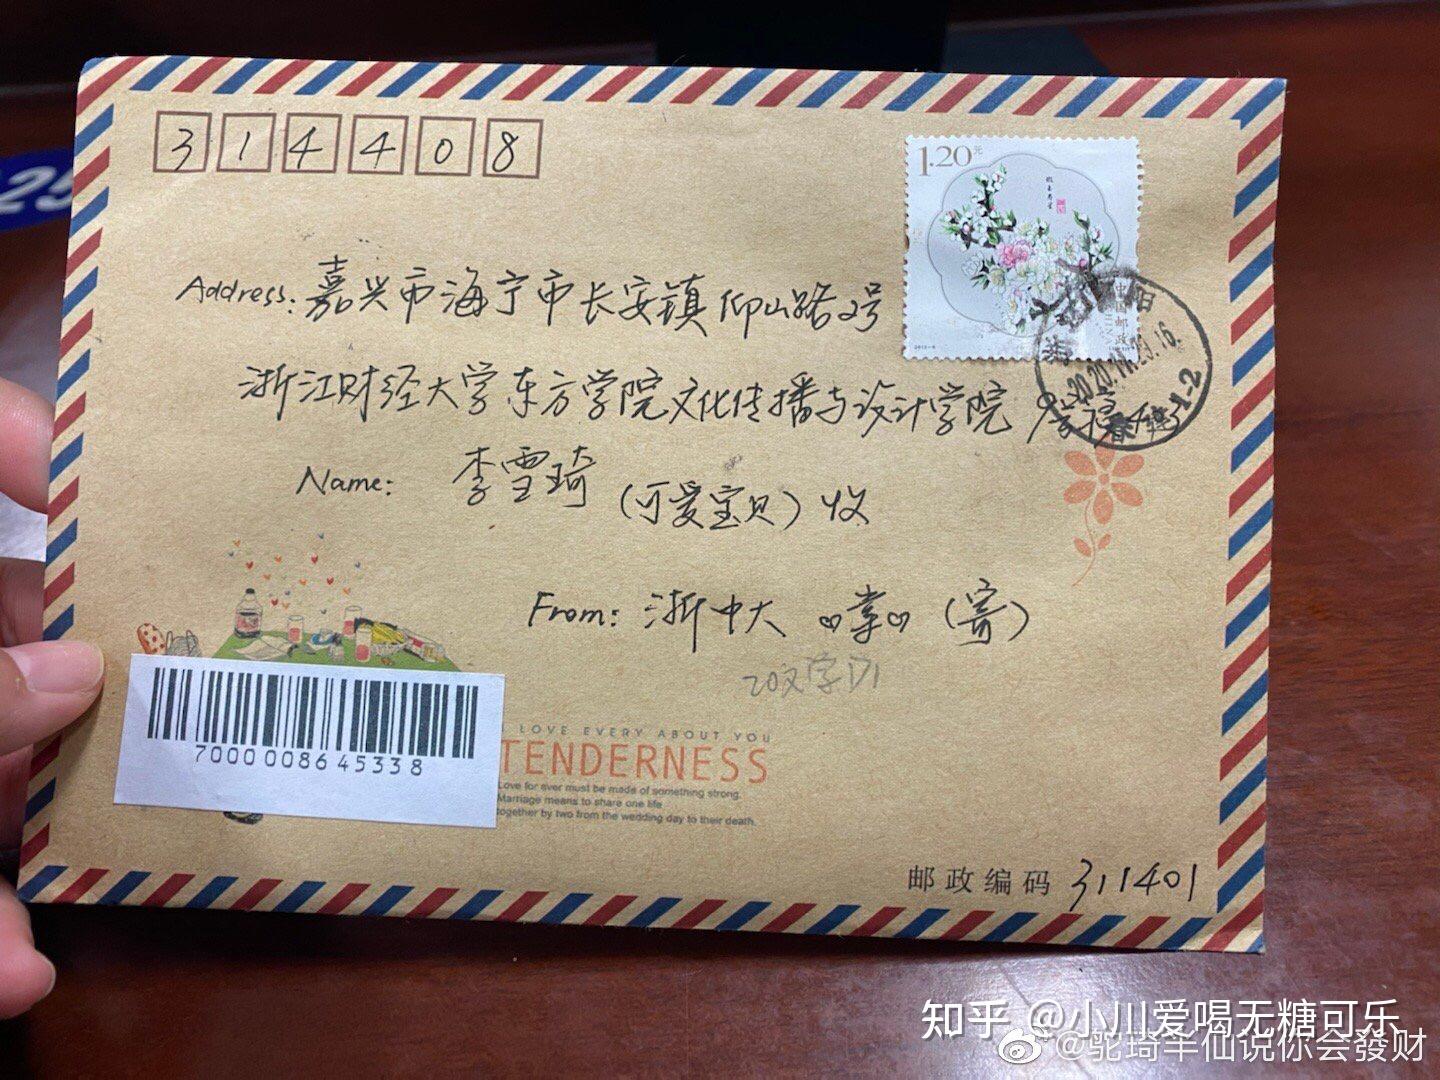 314408
1.20元
Address: 嘉兴市海宁市长安镇仰山路2号
浙江财经大学东方学院文化传播与设计学院
Name: 李雪琦 (可爱宝贝) 收
From: 浙中大 掌 (寄)
20文学 1
LOVE EVERY ABOUT YOU
TENDERNESS
Love for ever must be made of something strong.
Marriage means to share one life
together by two from the wedding day to their death.
7000 0086 45338
邮政编码 311401
知乎 @小川爱喝无糖可乐
@鸵琦半仙说你会發财